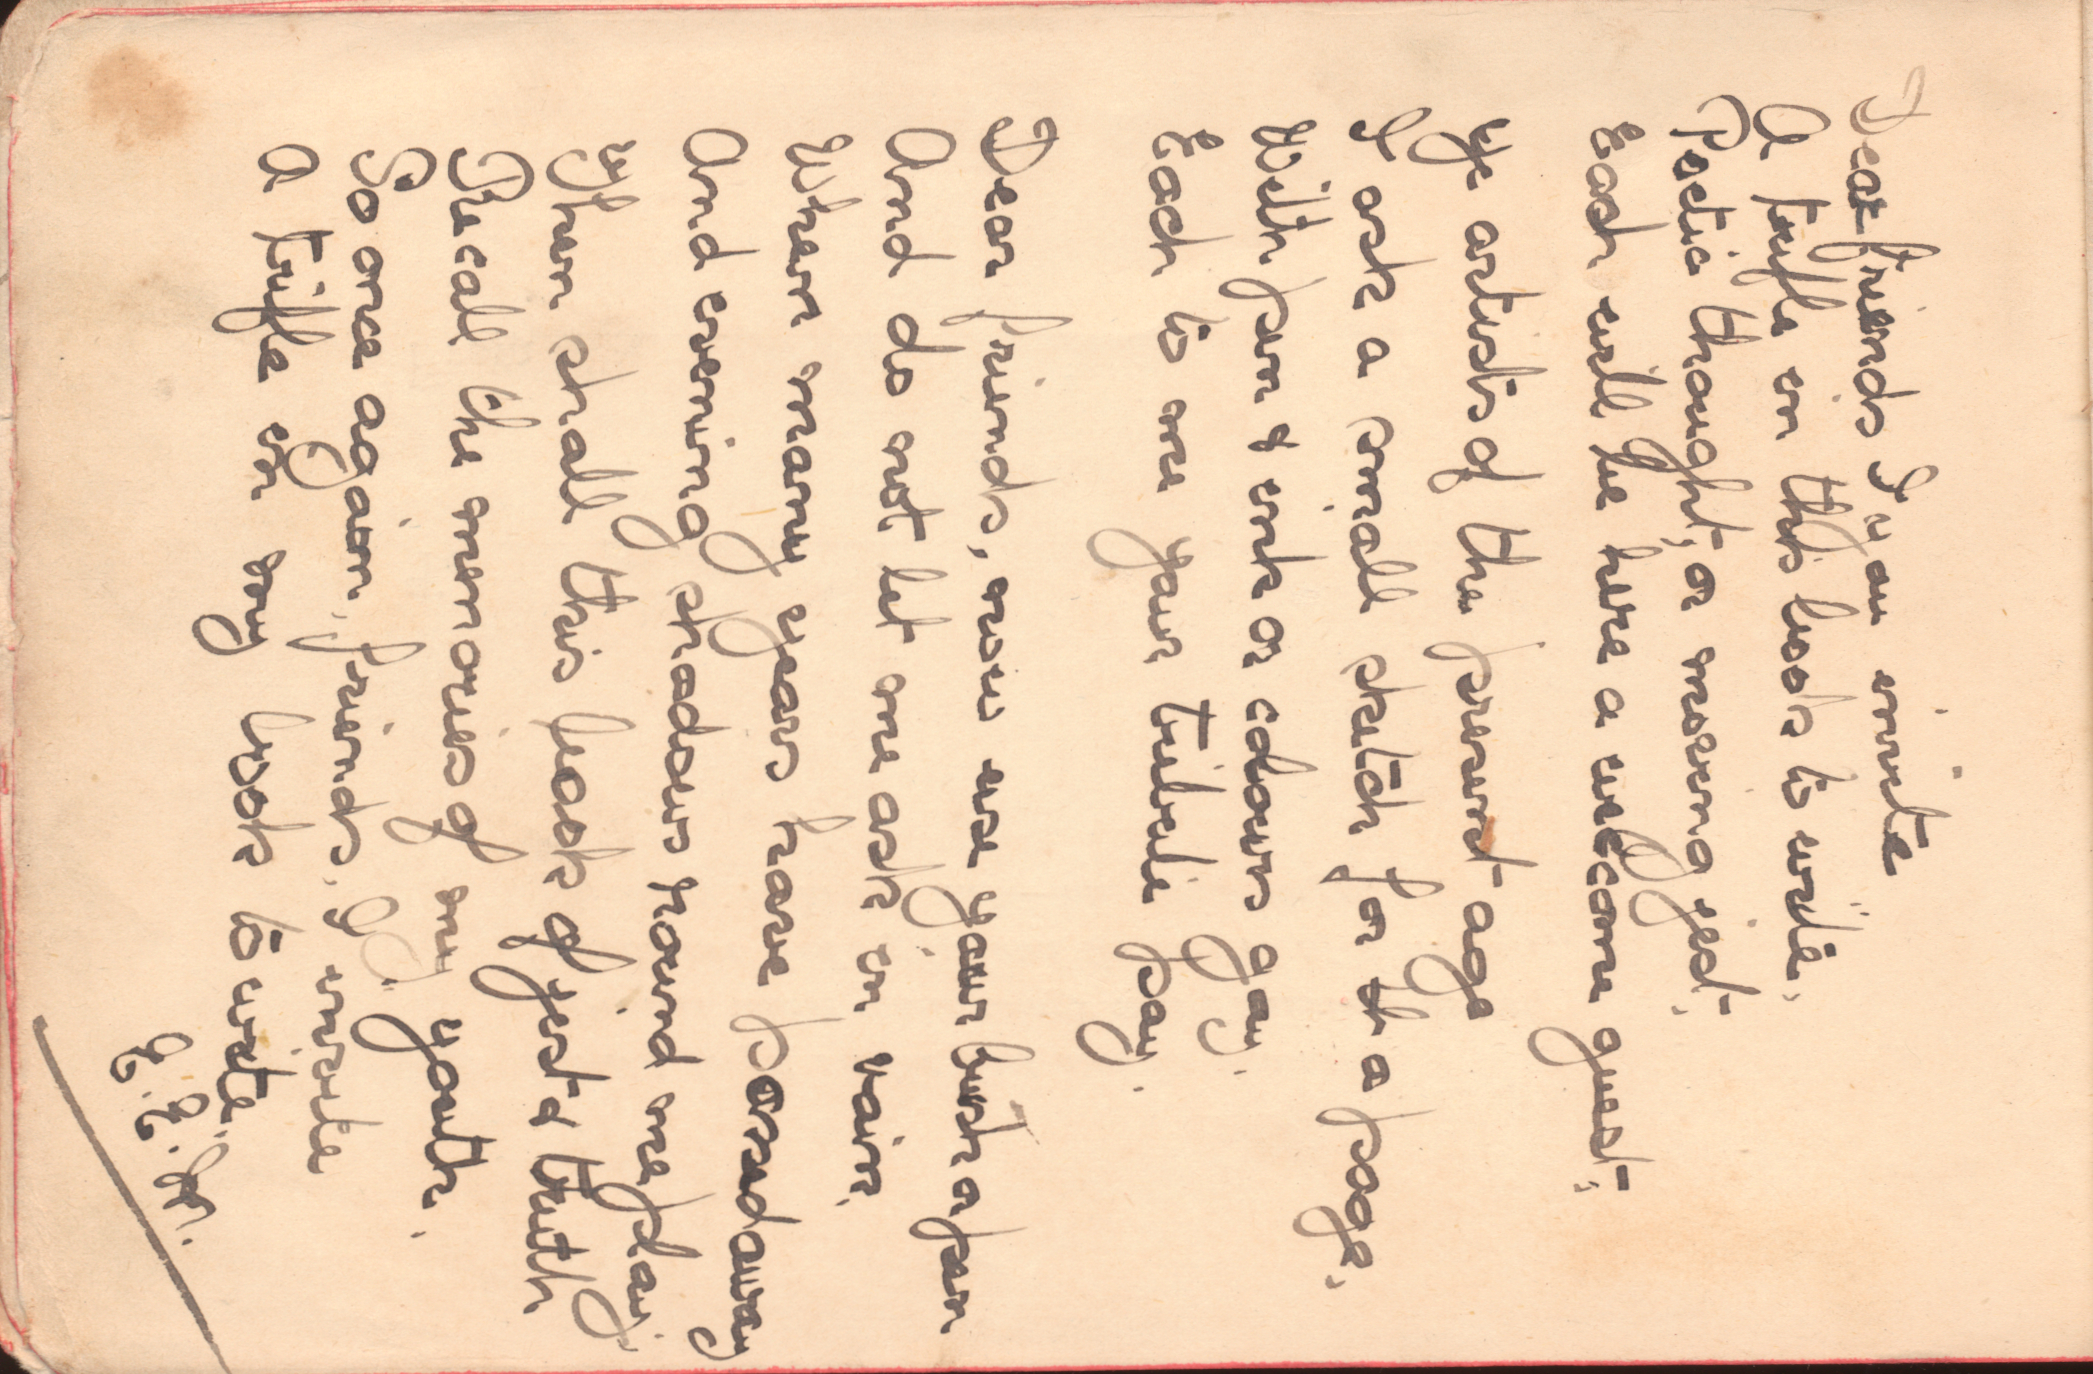 Dear friends I'll au invite
A trifle in this book to write,
Poetic thought, a moving jest,
Each will be here a welcome guest;
Ye artists of the present age
I ask a small sketch for th a page,
With pen & ink or colours gay,
Each to me your tribute pay.
Dear friends, now use your brush or pen
And do not let me ask in vain.
When many years have passed away
And evening shadows round me play;
Then shall this book of jest & truth
Recall the memories of my youth.
So once again, friends, I invite
A trifle in my book to write.
E.E.M.